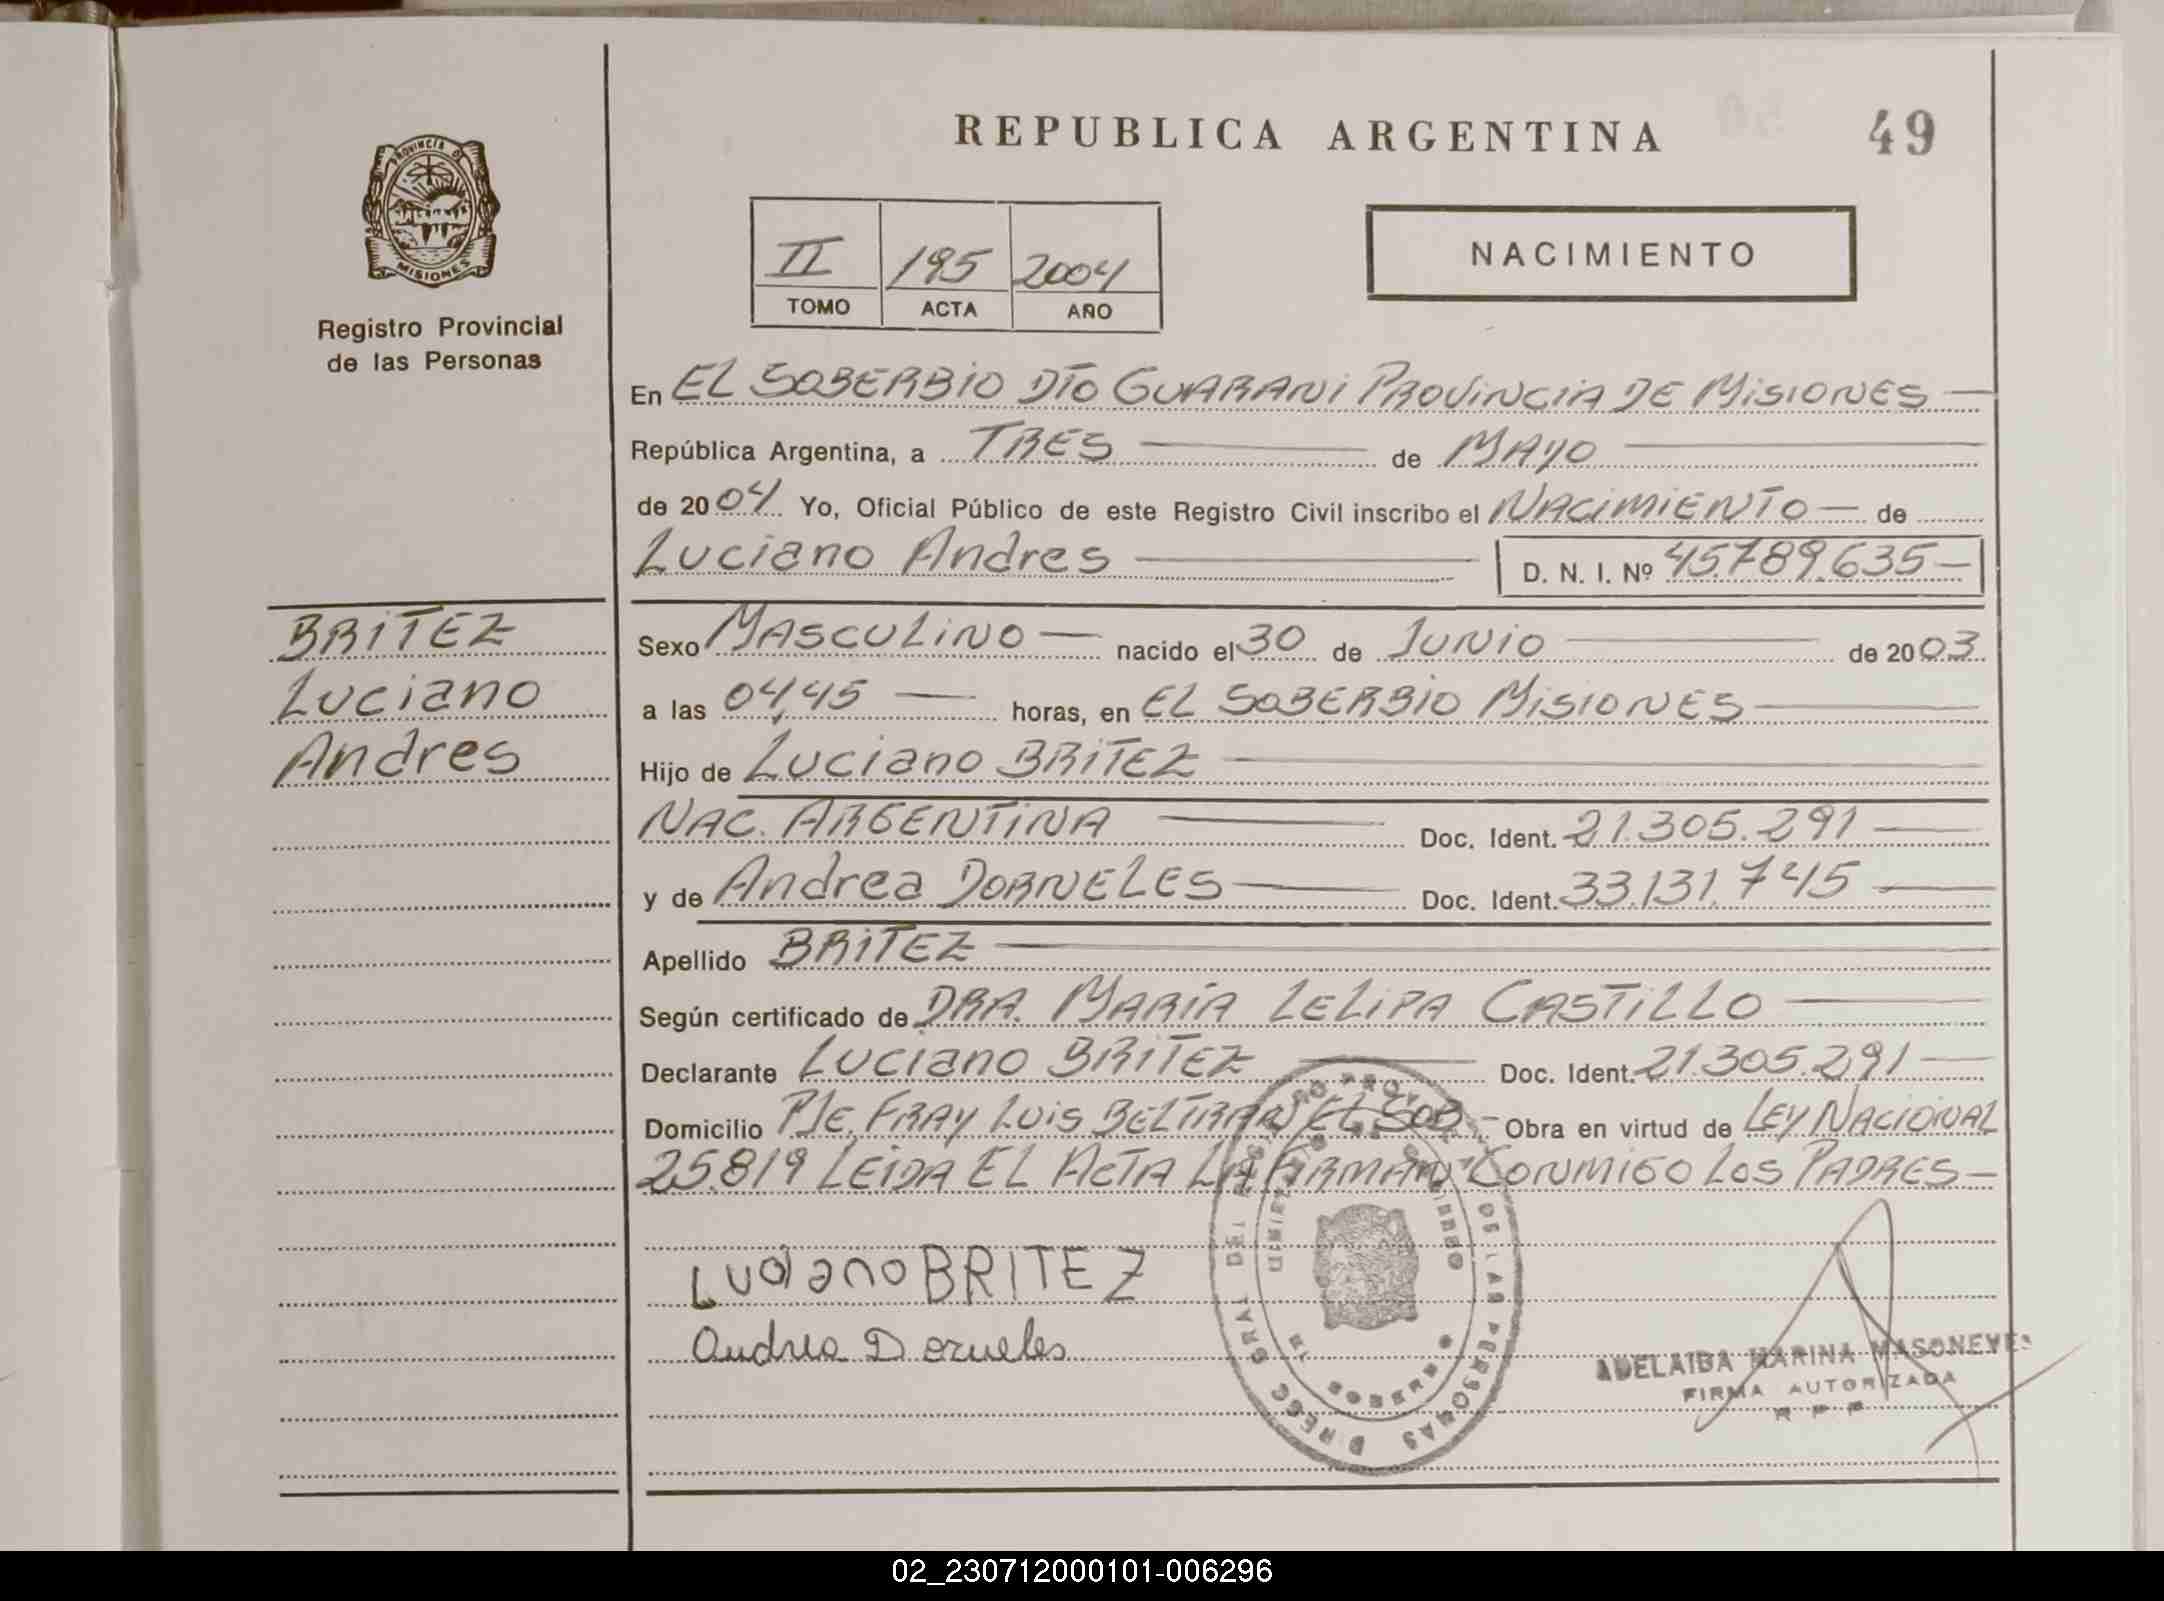 REPUBLICA ARGENTINA
49
PROVINCIA DE
MISIONES
Registro Provincial
de las Personas
II 195 2004
TOMO ACTA AÑO
NACIMIENTO
En EL SOBERBIO DTO GUARANI PROVINCIA DE MISIONES
República Argentina, a TRES de MAYO
de 2004 Yo, Oficial Público de este Registro Civil inscribo el NACIMIENTO de
Luciano Andres D. N. I. Nº 45.789.635
BRITEZ
Luciano
Andres
Sexo MASCULINO nacido el 30 de JUNIO de 2003
a las 04,45 horas, en EL SOBERBIO MISIONES
Hijo de Luciano BRITEZ
NAC. ARGENTINA Doc. Ident. 21.305.291
y de Andrea DORNELES Doc. Ident. 33.131.745
Apellido BRITEZ
Según certificado de DRA. MARIA LELIPA CASTILLO
Declarante Luciano BRITEZ Doc. Ident. 21.305.291
Domicilio PJE. FRAY LUIS BELTRAN EL SOB Obra en virtud de LEY NACIONAL
25.819 LEIDA EL ACTA LA FIRMAN CONMIGO LOS PADRES
Luciano BRITEZ
Andrea Dorneles
DE LAS PERSONAS
ADELAIDA MARINA MASONEVES
FIRMA AUTORIZADA
02_230712000101-006296